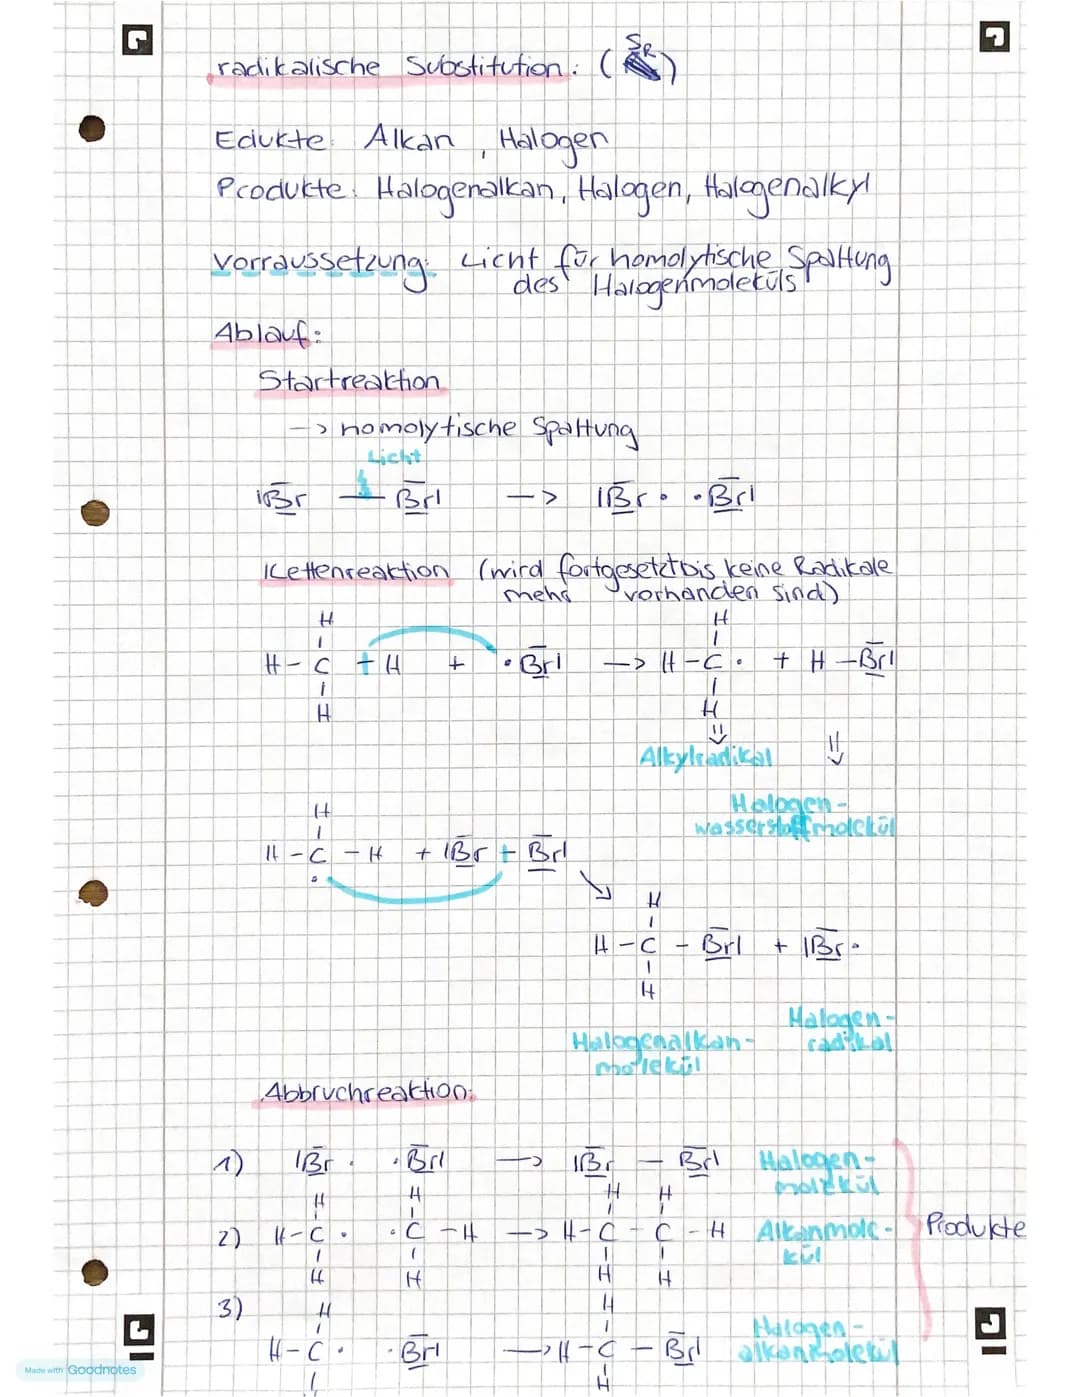 radikalische Substitution: (SR)
Edukte: Alkan, Halogen
Produkte: Halogenalkan, Halogen, Halogenalkyl
Vorraussetzung: Licht für homolytische Spaltung
des Halogenmoleküls
Ablauf:
Startreaktion
-> homolytische Spaltung
Licht
|Br — Br| -> |Br· ·Br|
Kettenreaktion (wird fortgesetzt bis keine Radikale
mehr vorhanden sind)
H H
H - C - H + ·Br| -> H - C · + H - Br|
H H
Alkylradikal
Halogen-
wasserstoffmolekül
H
H - C - H + |Br - Br|
H
H - C - Br| + |Br·
H
Halogen-
radikal
Halogenalkan-
molekül
Abbruchreaktion:
1) |Br· ·Br| -> |Br - Br| Halogen-
molekül
H H H H
2) H - C · · C - H -> H - C - C - H Alkanmole-
kül
Produkte
H H H H
3) H H
H - C · ·Br| -> H - C - Br| Halogen-
alkanmolekül
H
Made with Goodnotes